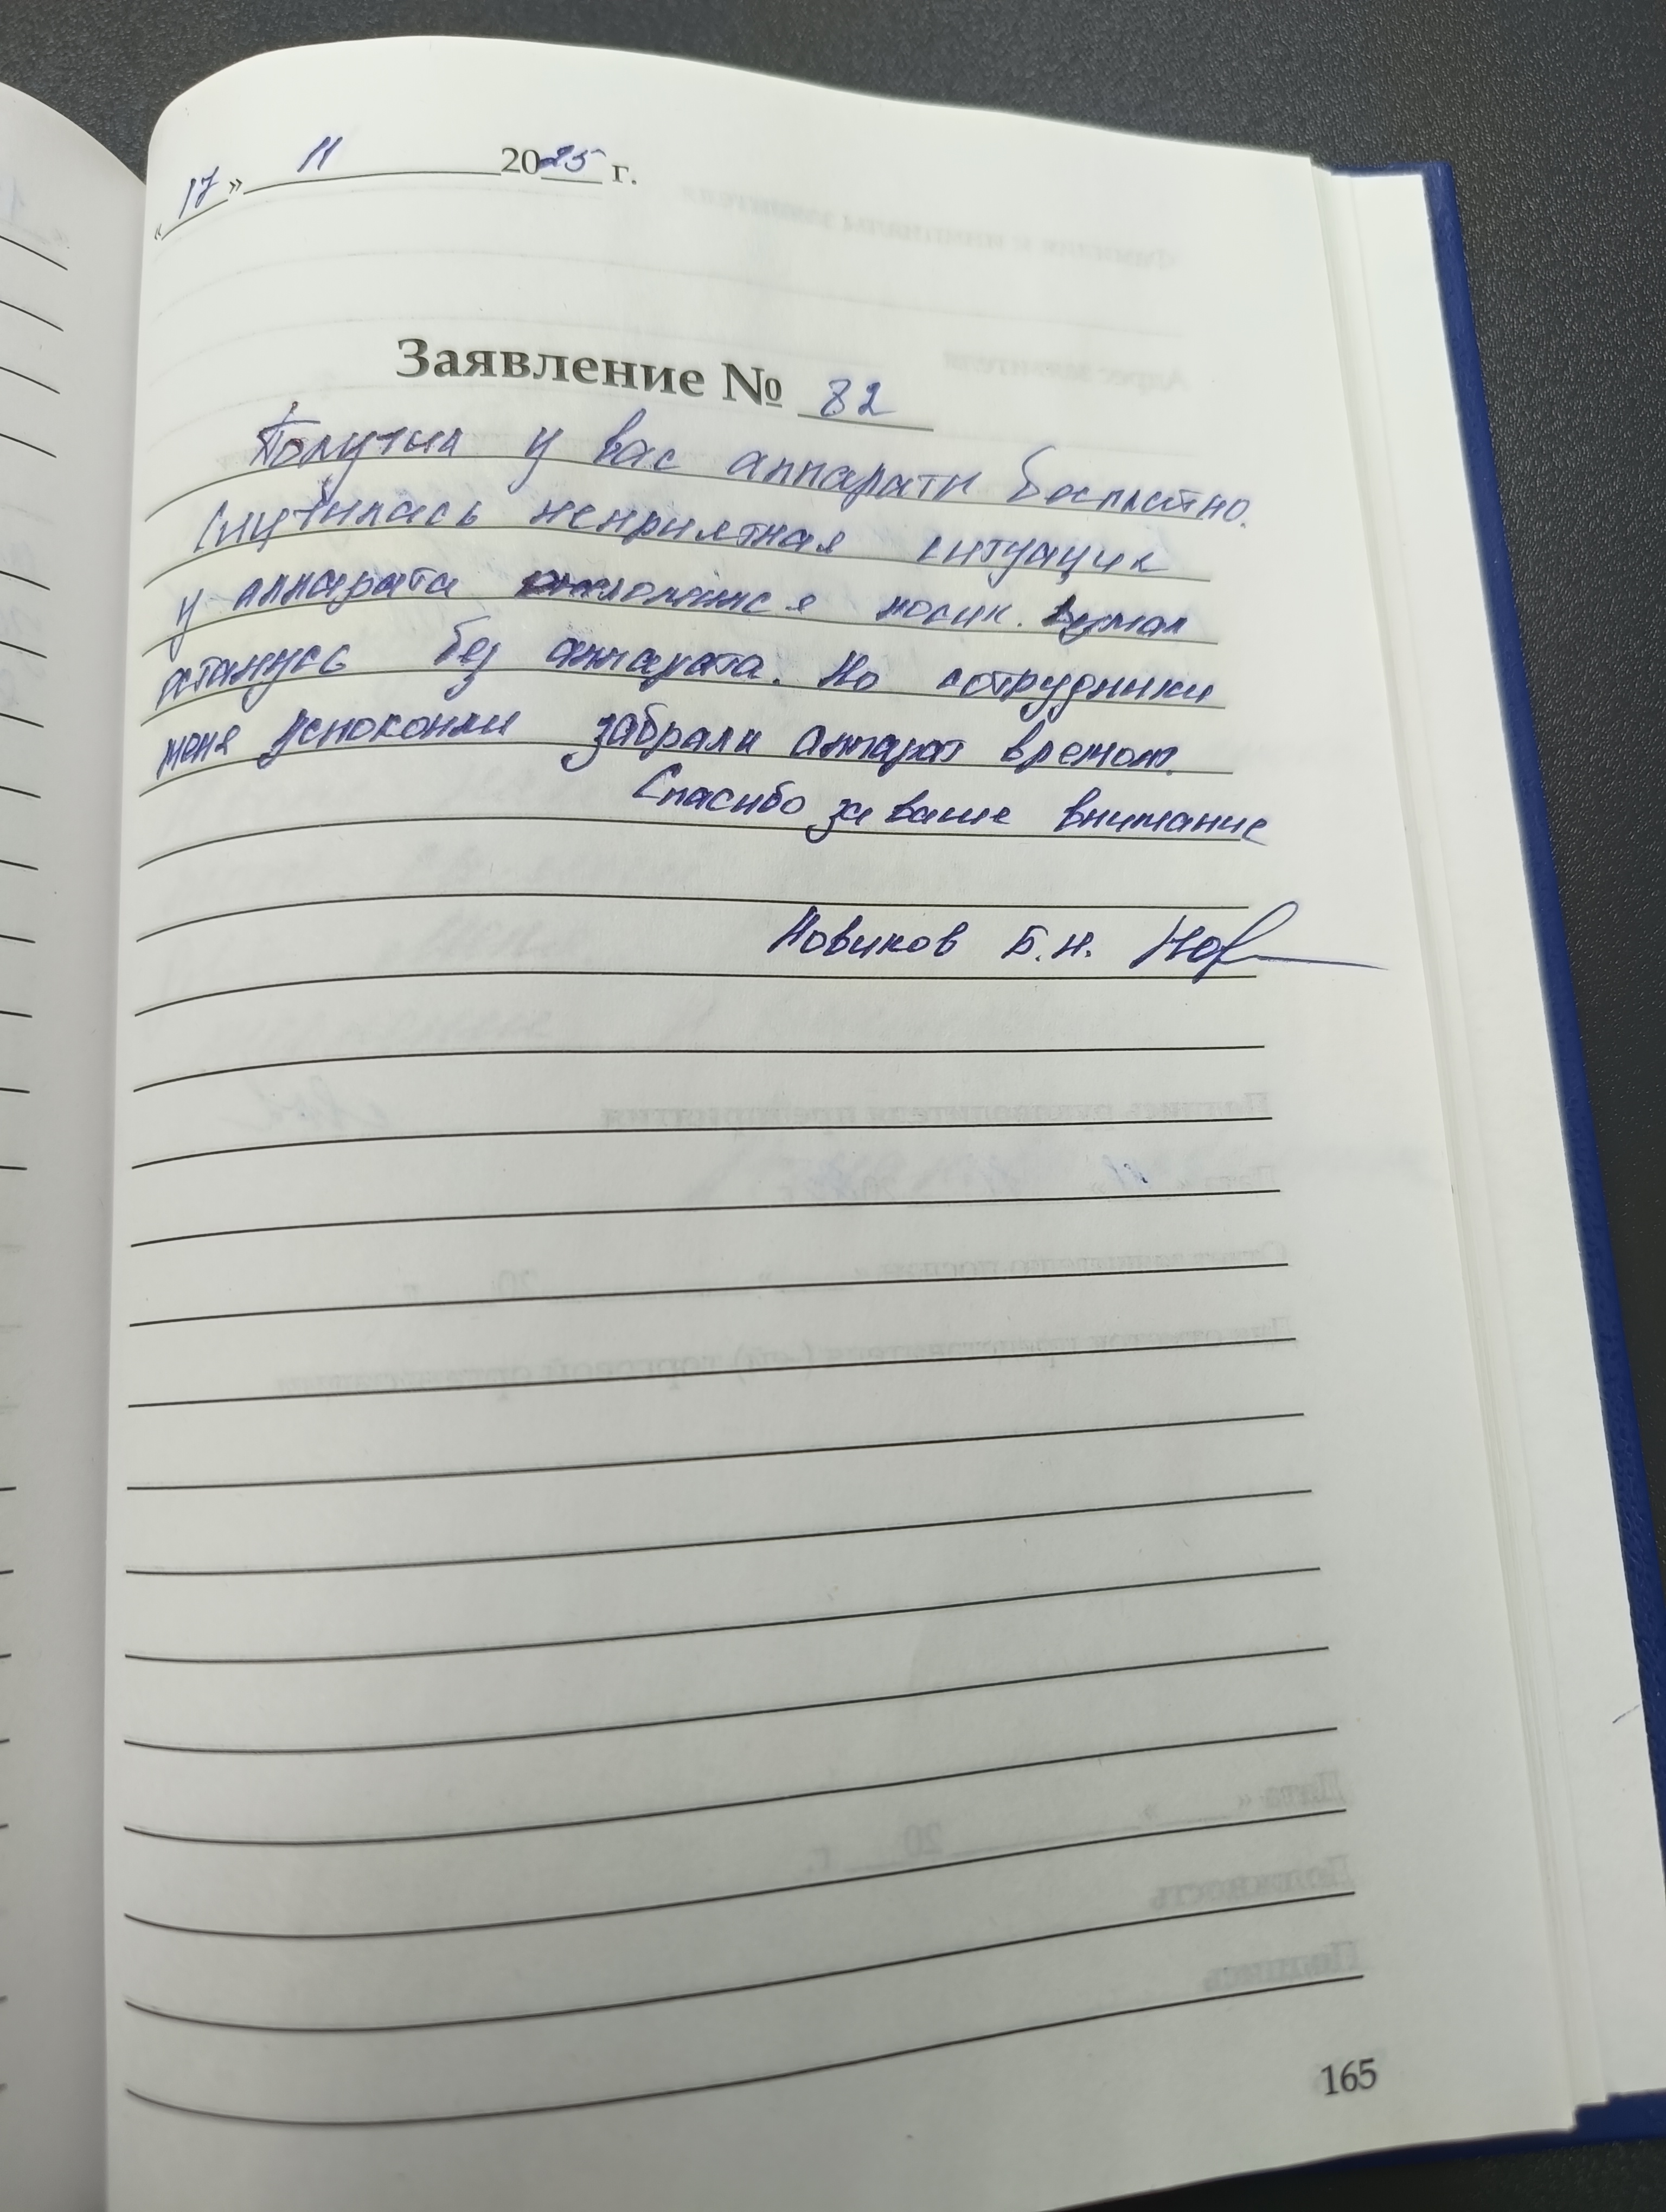 «17» 11 2025 г.
Заявление № 82
Получил у вас аппараты бесплатно.
Случилась неприятная ситуация
у аппарата сломался носик. Думал
останусь без аппарата. Но сотрудники
меня успокоили забрали аппарат в ремонт.
Спасибо за ваше внимание
Новиков Б.Н.
165